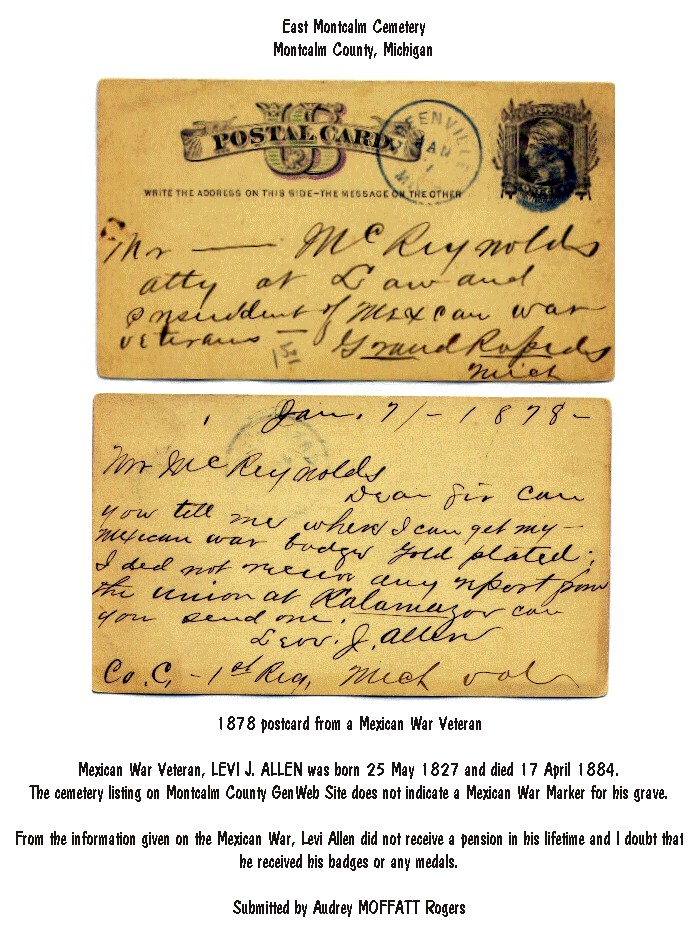 East Montcalm Cemetery
Montcalm County, Michigan
US
POSTAL CARD.
GREENVILLE
JAN
7
MICH
WRITE THE ADDRESS ON THIS SIDE-THE MESSAGE ON THE OTHER
Mr — McReynolds
atty at Law and
president of Mexican war
veterans — Grand Rapids
Mich
Jan. 7/-1878-
Mr McReynolds
Dear Sir can
you tell me where I can get my-
Mexican war badge gold plated;
I did not receive any report from
the union at Kalamazoo can
you send one.
Levi. J. Allen
Co. C, - 1st Reg, Mich vol
1878 postcard from a Mexican War Veteran
Mexican War Veteran, LEVI J. ALLEN was born 25 May 1827 and died 17 April 1884.
The cemetery listing on Montcalm County GenWeb Site does not indicate a Mexican War Marker for his grave.
From the information given on the Mexican War, Levi Allen did not receive a pension in his lifetime and I doubt that
he received his badges or any medals.
Submitted by Audrey MOFFATT Rogers